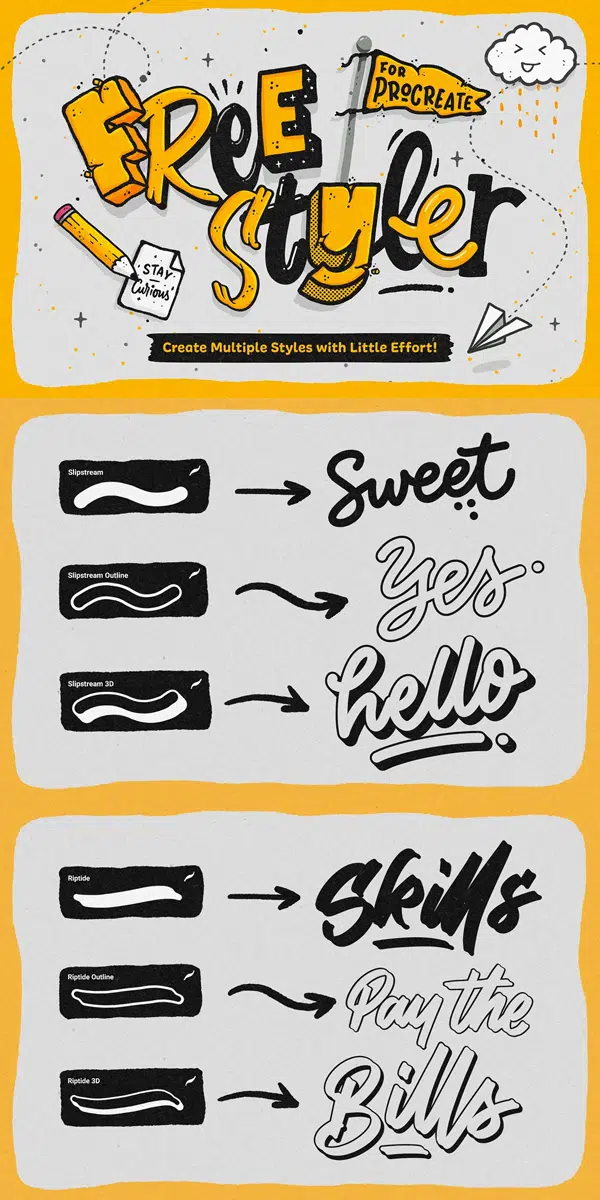 FREE
FOR
PROCREATE
Styler
STAY
Curious
Create Multiple Styles with Little Effort!
Slipstream
Sweet
Slipstream Outline
Yes
Slipstream 3D
hello
Riptide
Skills
Riptide Outline
Pay the
Riptide 3D
Bills